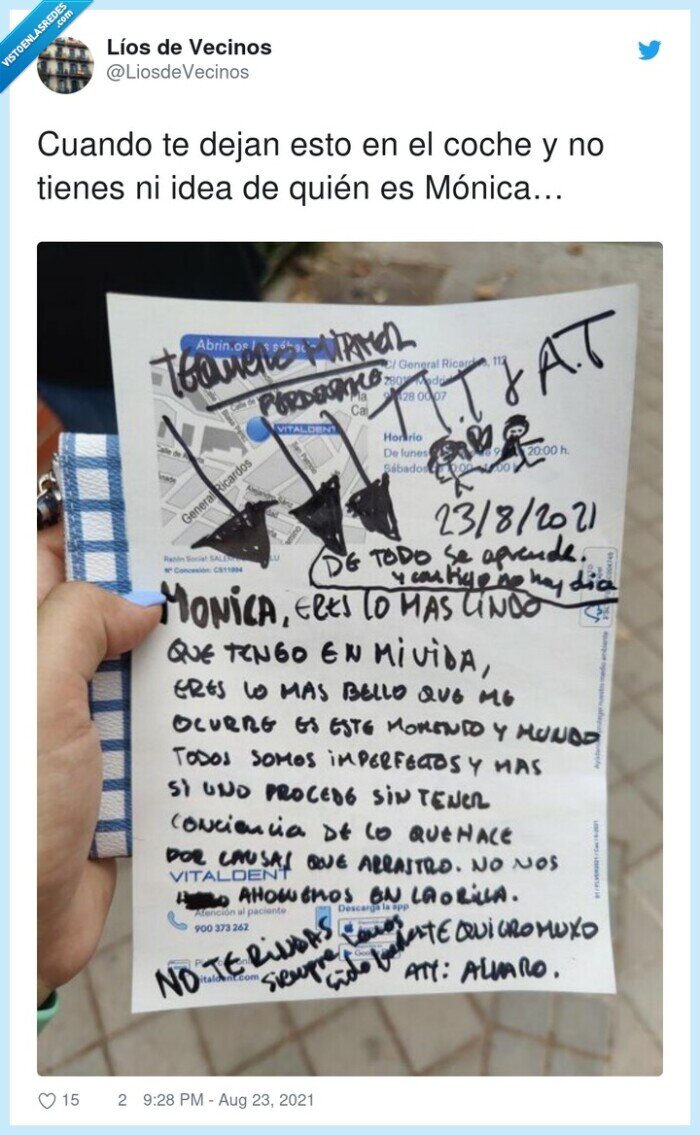 VISTOENLASREDES
.com
Líos de Vecinos
@LiosdeVecinos
Cuando te dejan esto en el coche y no
tienes ni idea de quién es Mónica…
Abrimos los sábados
TEQUIERO MI AMOR
C/ General Ricardos, 112
28019 Madrid
28 00 07
T.T y A.T
VITALDENT
Horario
De lunes 20:00 h.
Sábados
General Ricardos
23/8/2021
Razón Social:
Nº Concesión: CS11994
DE TODO Se aprende.
y contigo no hay dia
MONICA, ERES LO MAS LINDO
QUE TENGO EN MI VIDA,
ERES LO MAS BELLO QUE ME
OCURRE ES ESTE MOMENTO Y MUNDO
TODOS SOMOS IMPERFECTOS Y MAS
SI UNO PROCEDE SIN TENER
CONCIENCIA DE LO QUE HACE
POR CAUSAS QUE ARRASTRO. NO NOS
VITALDENT
AHOGUEMOS EN LA ORILLA.
Atención al paciente
900 373 262
Descarga la app
NO TE RINDAS
siempre
TE QUIERO MUXO
vitaldent.com
ATT: ALVARO.
15
2
9:28 PM - Aug 23, 2021